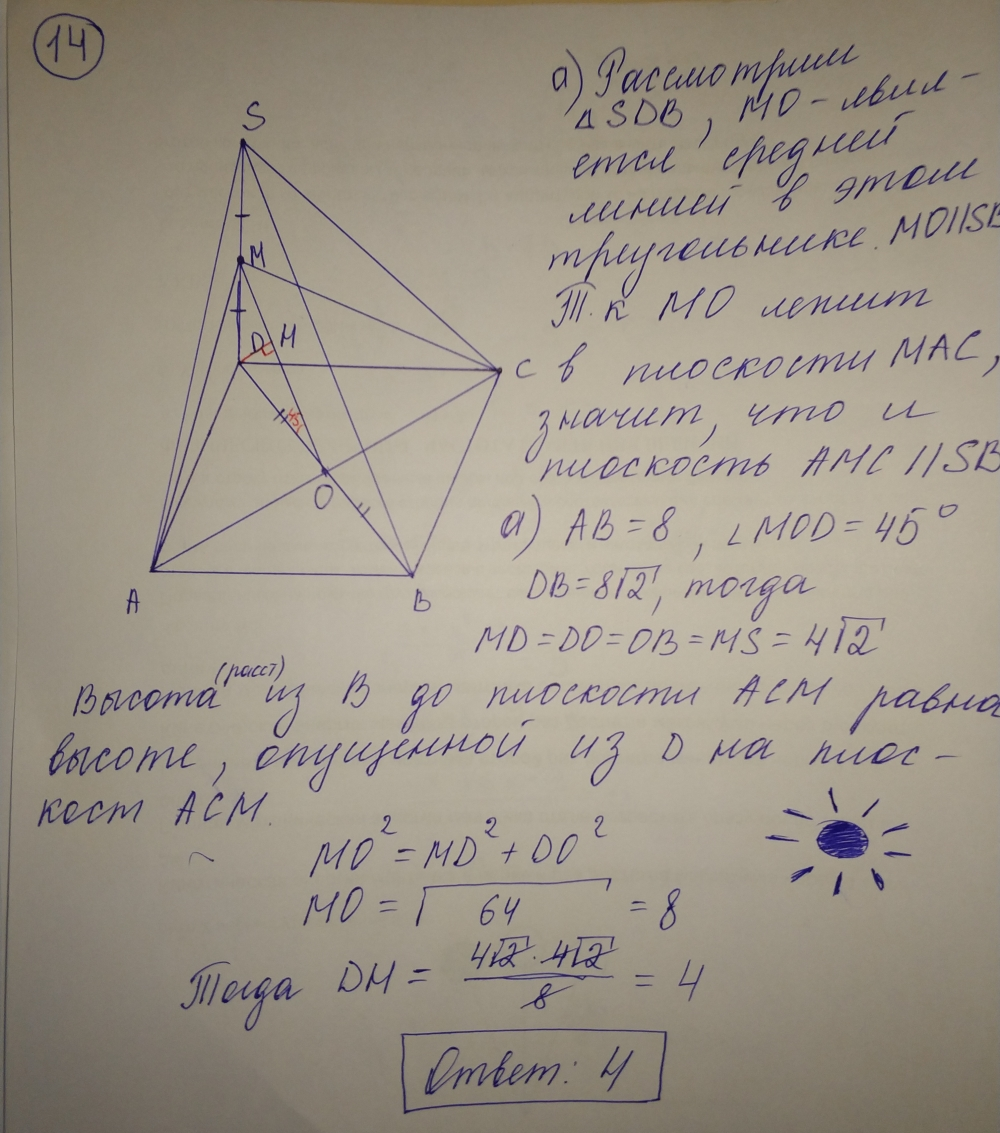 14
S
M
D
H
C
O
A
B
45
а) Рассмотрим
△SDB, MO - явля-
ется средней
линией в этом
треугольнике. MO||SB
Т.к MO лежит
в плоскости MAC,
значит, что и
плоскость AMC || SB
а) AB = 8, ∠MOD = 45°
DB = 8√2, тогда
MD = DO = OB = MS = 4√2
Высота (расст) из B до плоскости ACM равна
высоте, опущенной из D на плос-
кост ACM.
MO² = MD² + DO²
MO = √64 = 8
Тогда DH = (4√2 · 4√2)/8 = 4
Ответ: 4